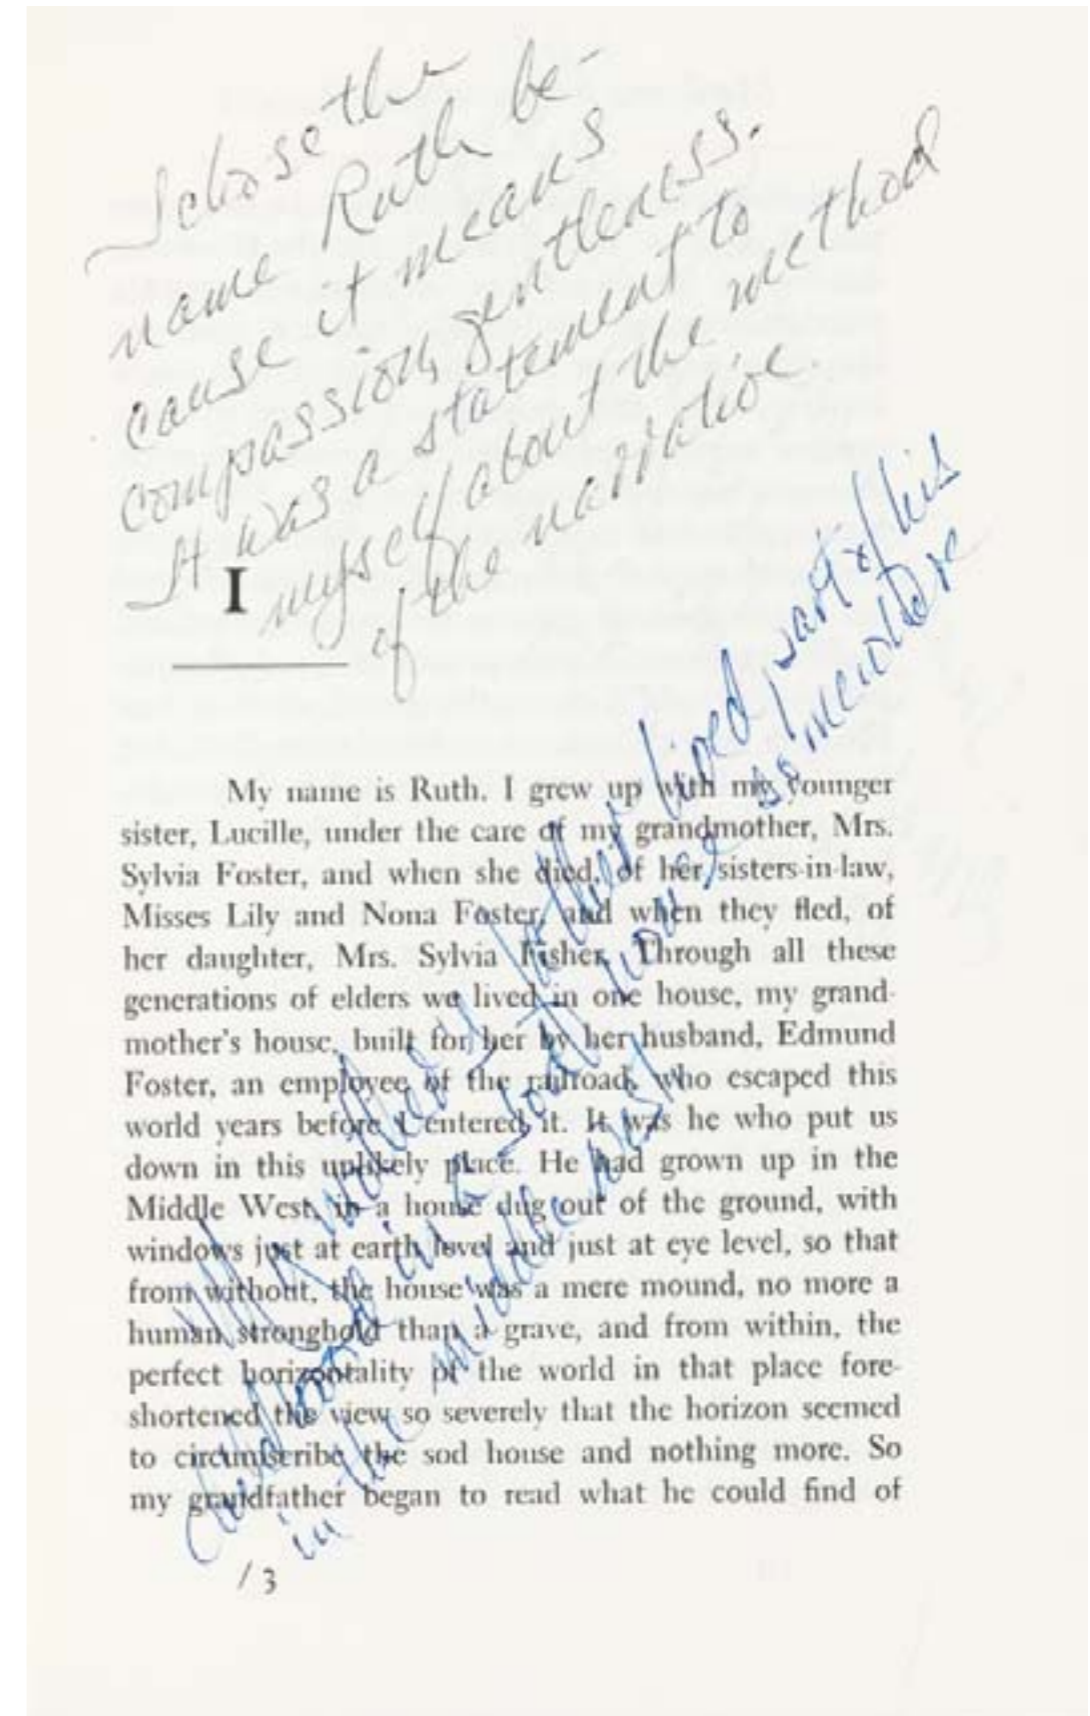 I chose the
name Ruth be-
cause it means
compassion, gentleness.
It was a statement to
myself about the method
of the narrative.
I
My mother's father lived part of his
childhood in a sod house somewhere
in the middle west
My name is Ruth. I grew up with my younger
sister, Lucille, under the care of my grandmother, Mrs.
Sylvia Foster, and when she died, of her sisters-in-law,
Misses Lily and Nona Foster, and when they fled, of
her daughter, Mrs. Sylvia Fisher. Through all these
generations of elders we lived in one house, my grand-
mother's house, built for her by her husband, Edmund
Foster, an employee of the railroad, who escaped this
world years before I entered it. It was he who put us
down in this unlikely place. He had grown up in the
Middle West, in a house dug out of the ground, with
windows just at earth level and just at eye level, so that
from without, the house was a mere mound, no more a
human stronghold than a grave, and from within, the
perfect horizontality of the world in that place fore-
shortened the view so severely that the horizon seemed
to circumscribe the sod house and nothing more. So
my grandfather began to read what he could find of
/ 3